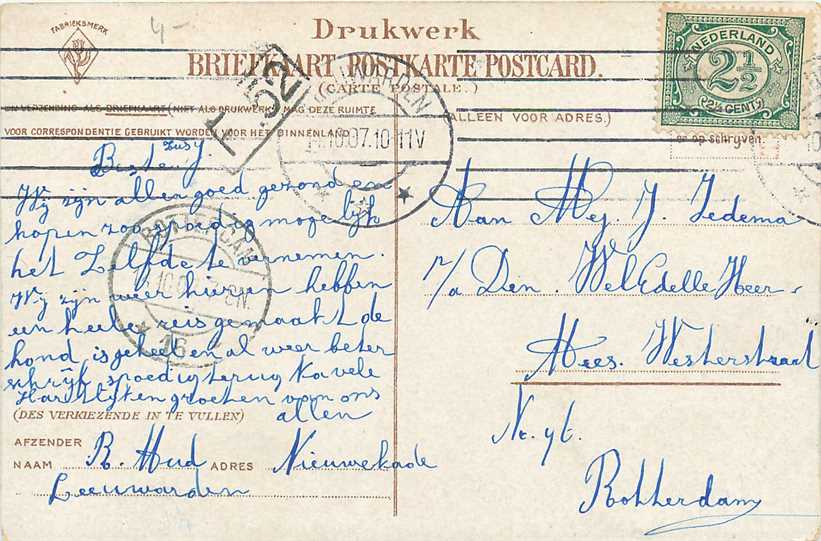 FABRIEKSMERK
4-
Drukwerk
BRIEFKAART POSTKARTE POSTCARD.
(CARTE POSTALE.)
BIJ VERZENDING ALS BRIEFKAART (NIET ALS DRUKWERK) MAG DEZE RUIMTE
VOOR CORRESPONDENTIE GEBRUIKT WORDEN VOOR HET BINNENLAND
(ALLEEN VOOR ADRES.)
er op schrijven.
NEDERLAND
2½
(2½ CENT)
10.07.10-11V
ROTTERDAM
16
Beste Zus J.
Wij zijn allen goed gezond en
hopen zoo spoedig mogelijk
het Zelfde te vernemen.
Wij zijn weer hier en hebben
een heele reis gemaakt de
hond is geheel en al weer beter
schrijf spoedig terug
Hartelijken groeten van ons
allen
(DES VERKIEZENDE IN TE VULLEN)
AFZENDER
NAAM R. Hud ADRES Nieuwekade
Leeuwarden
Aan Mej. J. Iedema
p/a Den WelEdelle Heer
Mees. Westerstraat
Rotterdam